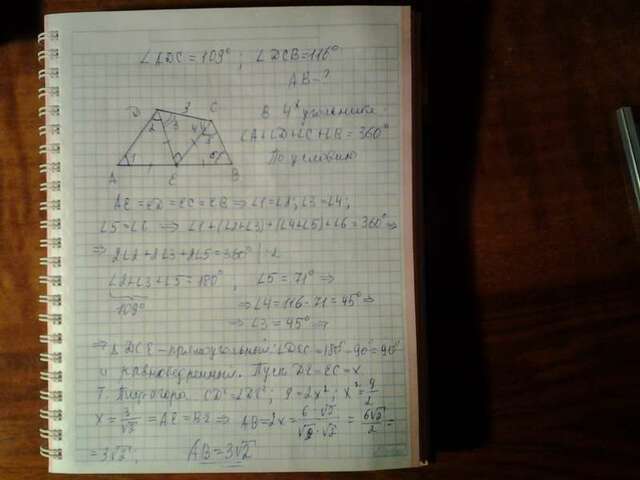 ∠ADC = 109°; ∠DCB = 116°
AB - ?
D 3 C
2 3 4 5
1 6
A E B
В 4х угольнике
∠A+∠D+∠C+∠B = 360°
По условию
AE = ED = EC = EB ⇒ ∠1=∠2; ∠3=∠4;
∠5=∠6 ⇒ ∠1+(∠2+∠3)+(∠4+∠5)+∠6=360° ⇒
⇒ 2∠2+2∠3+2∠5=360° |:2
∠2+∠3+∠5=180°, ∠5=71° ⇒
109°
⇒ ∠4=116-71=45° ⇒
⇒ ∠3=45° ⇒
⇒ Δ DCE - прямоугольный: ∠DEC=180°-90°=90°
и равнобедренный. Пусть DE=EC=x
Т. Пифагора CD²=2DE²; 9=2x²; x²=9/2
x = 3/√2 = AE = BE ⇒ AB=2x = 6·√2/√2·√2 = 6√2/2 =
= 3√2; AB=3√2